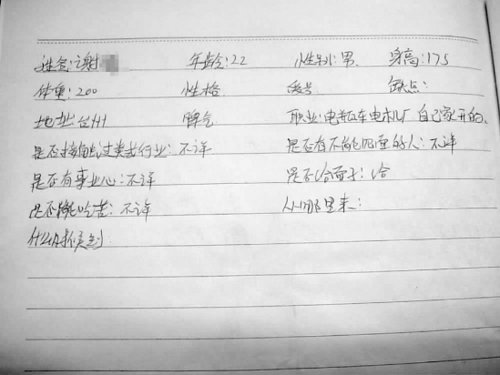 姓名:谢 年龄:22 性别:男 身高:175
体重:200 性格 爱好 缺点:
地址:台州 脾气 职业:电动车电机厂自己家开的、
是否接触过类式行业:不详 是否有不能见面的人:不详
是否有事业心:不详 是否给面子:给
是否能吃苦:不详 从哪里来:
什么时候到